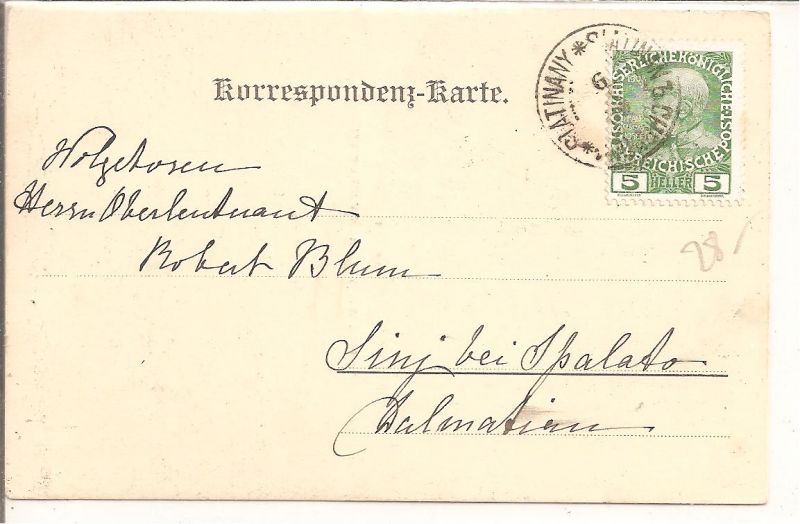 Korrespondenz-Karte.
SLATINAN * SLATINANY *
KAISERLICHE KÖNIGLICHE
ÖSTERREICHISCHE POST
5 HELLER 5
Wolgeboren
Herrn Oberleutnant
Robert Blum
Sinj bei Spalato
Dalmatien
28